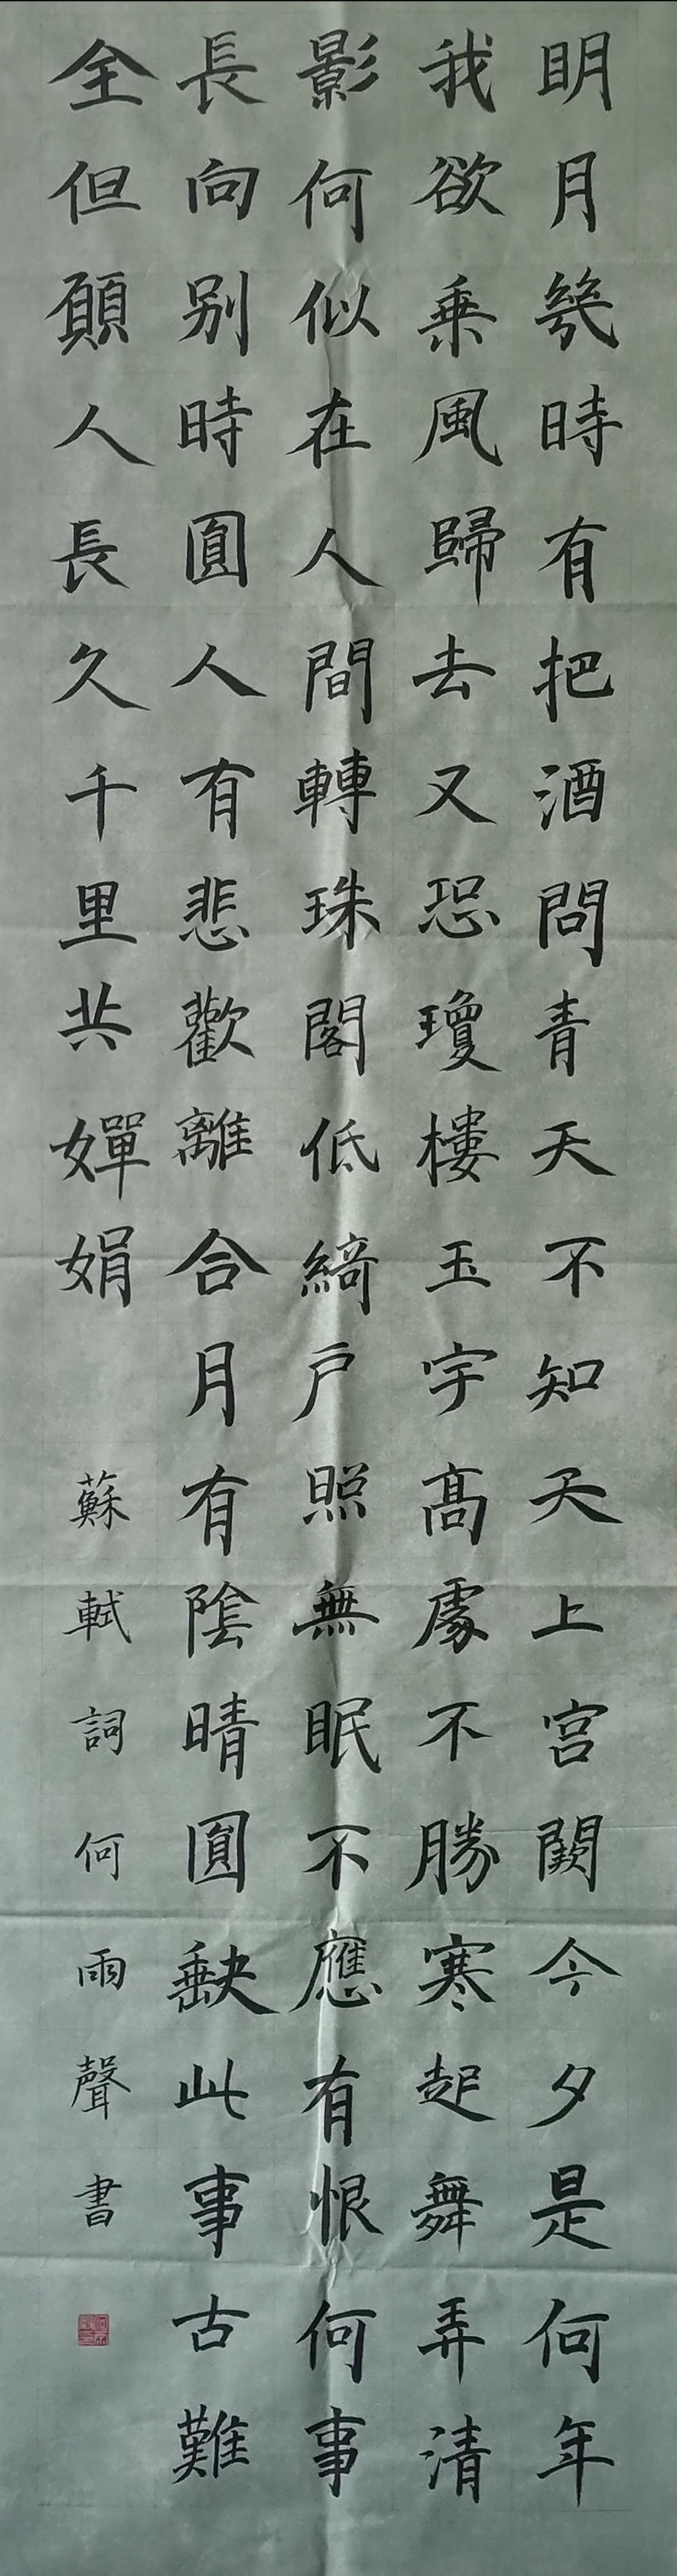 明月幾時有把酒問青天不知天上宮闕今夕是何年
我欲乗風歸去又恐瓊樓玉宇高處不勝寒起舞弄清
影何似在人間轉珠閣低綺戶照無眠不應有恨何事
長向别時圓人有悲歡離合月有陰晴圓缺此事古難
全但願人長久千里共嬋娟
蘇軾詞何雨聲書